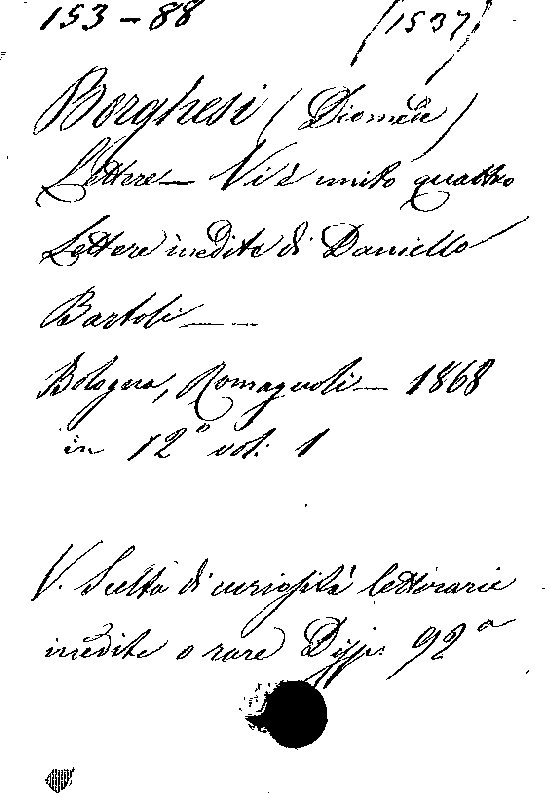 153-88 (1537)
Borghesi (Diomede)
Lettere — Vi è unito quattro
Lettere inedite di Daniello
Bartoli —
Bologna, Romagnoli — 1868
in 12° vol. 1
V. Scelta di curiosità letterarie
inedite o rare Disp. 92ª